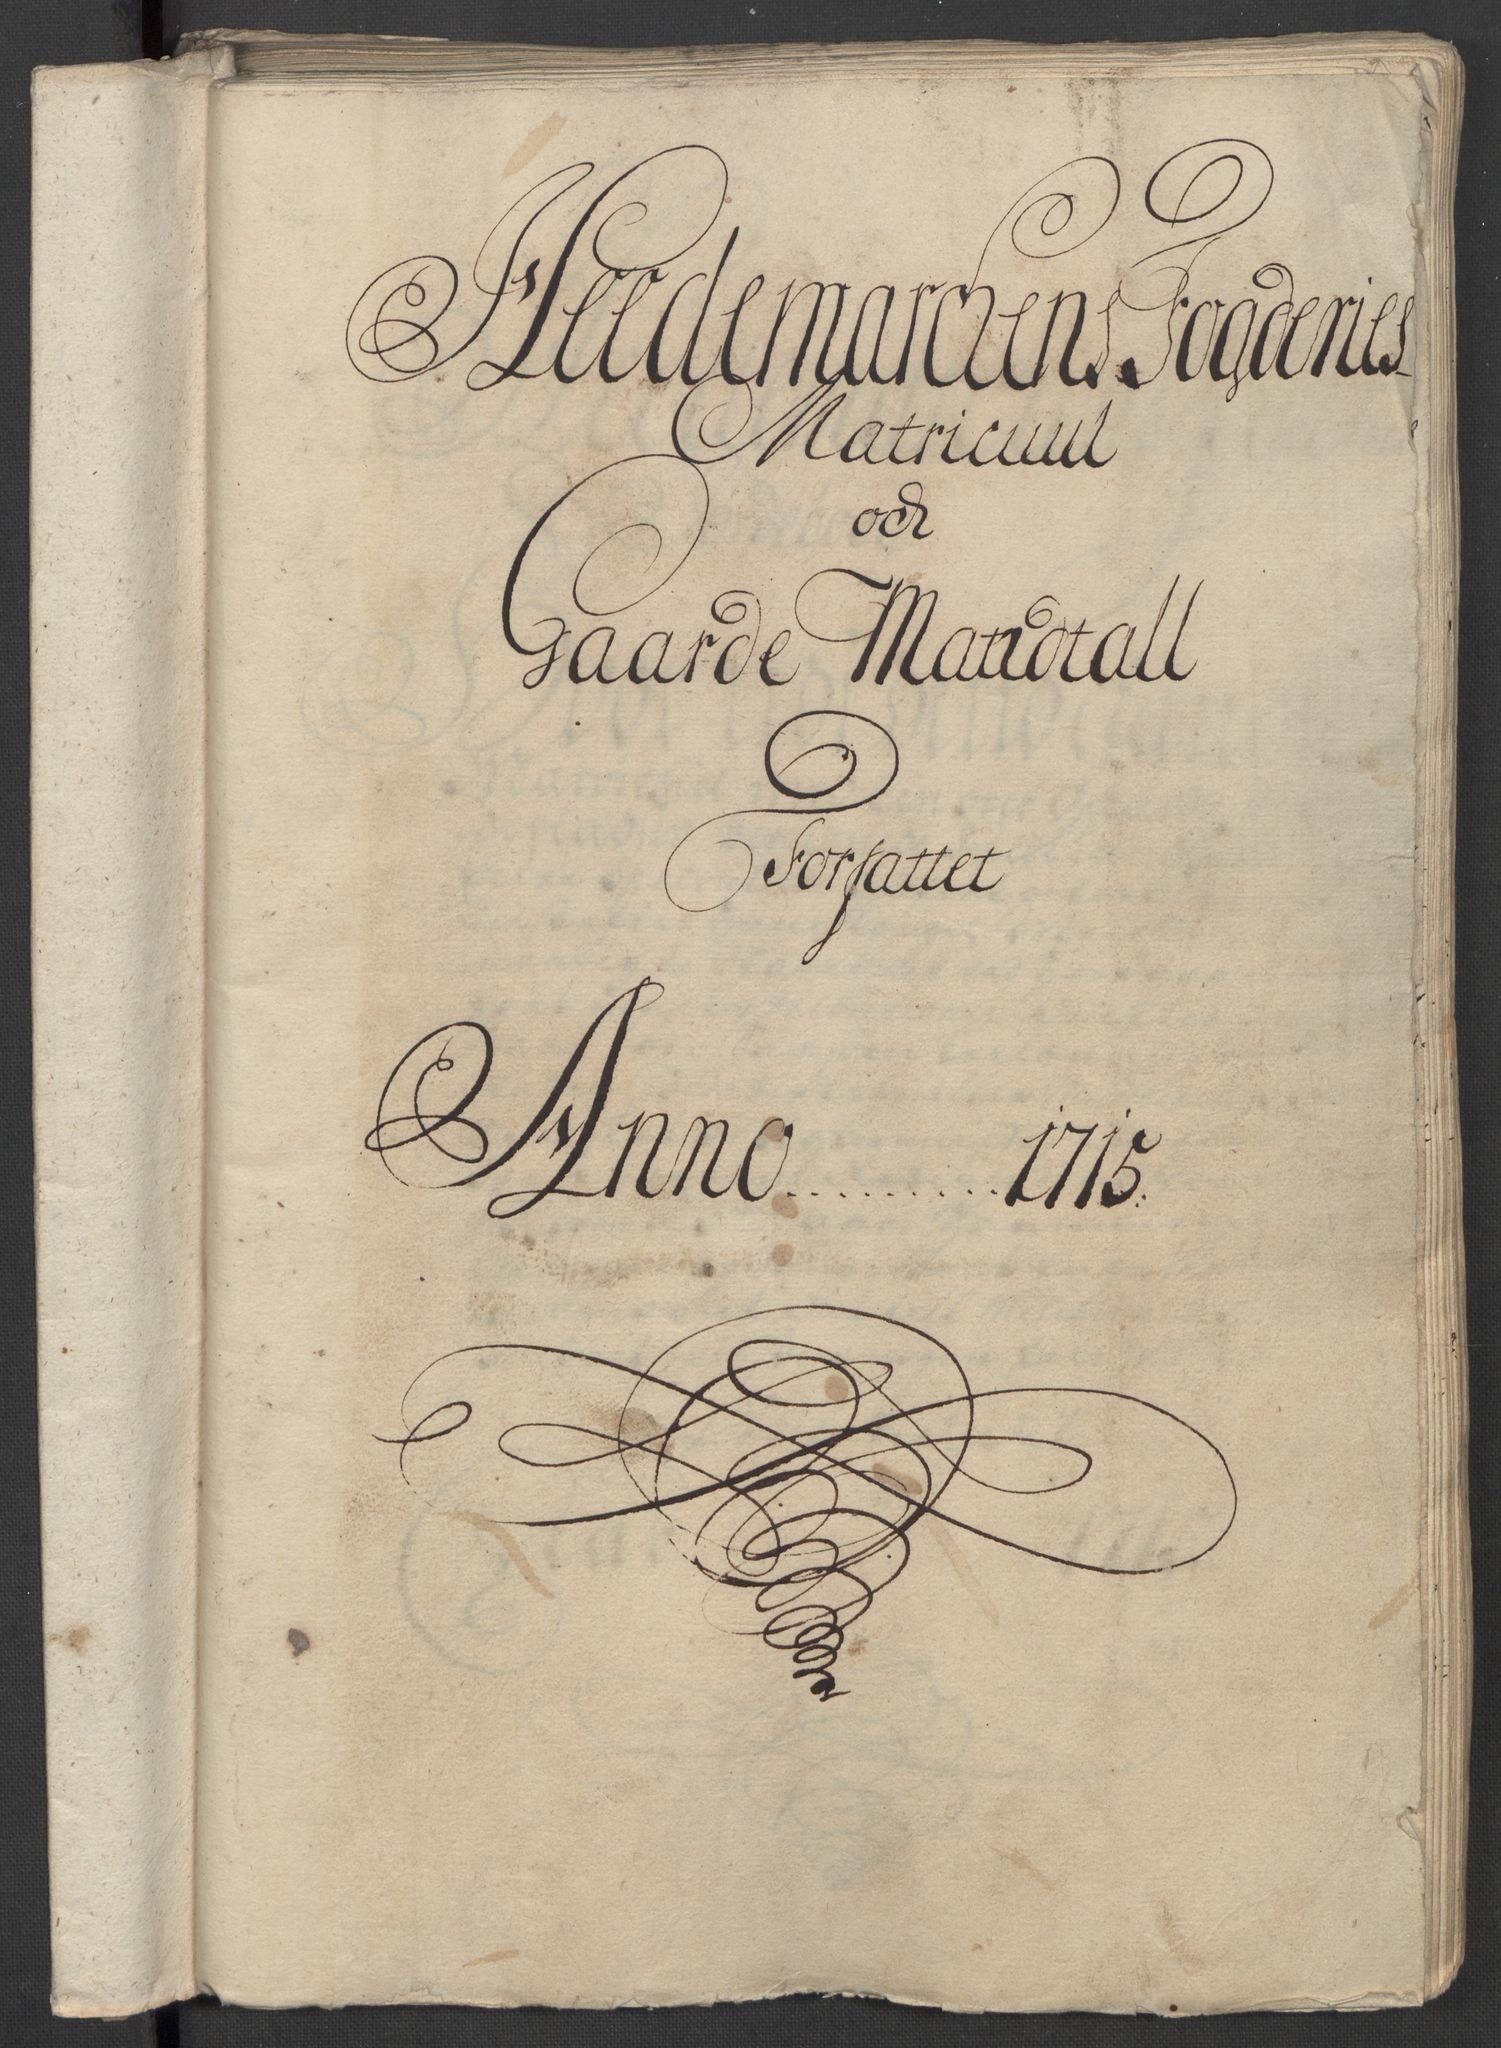 Heedemarckens Fogderies
Matricuul
och
Gaarde Mandtall
Forfattet
Anno .......... 1715.